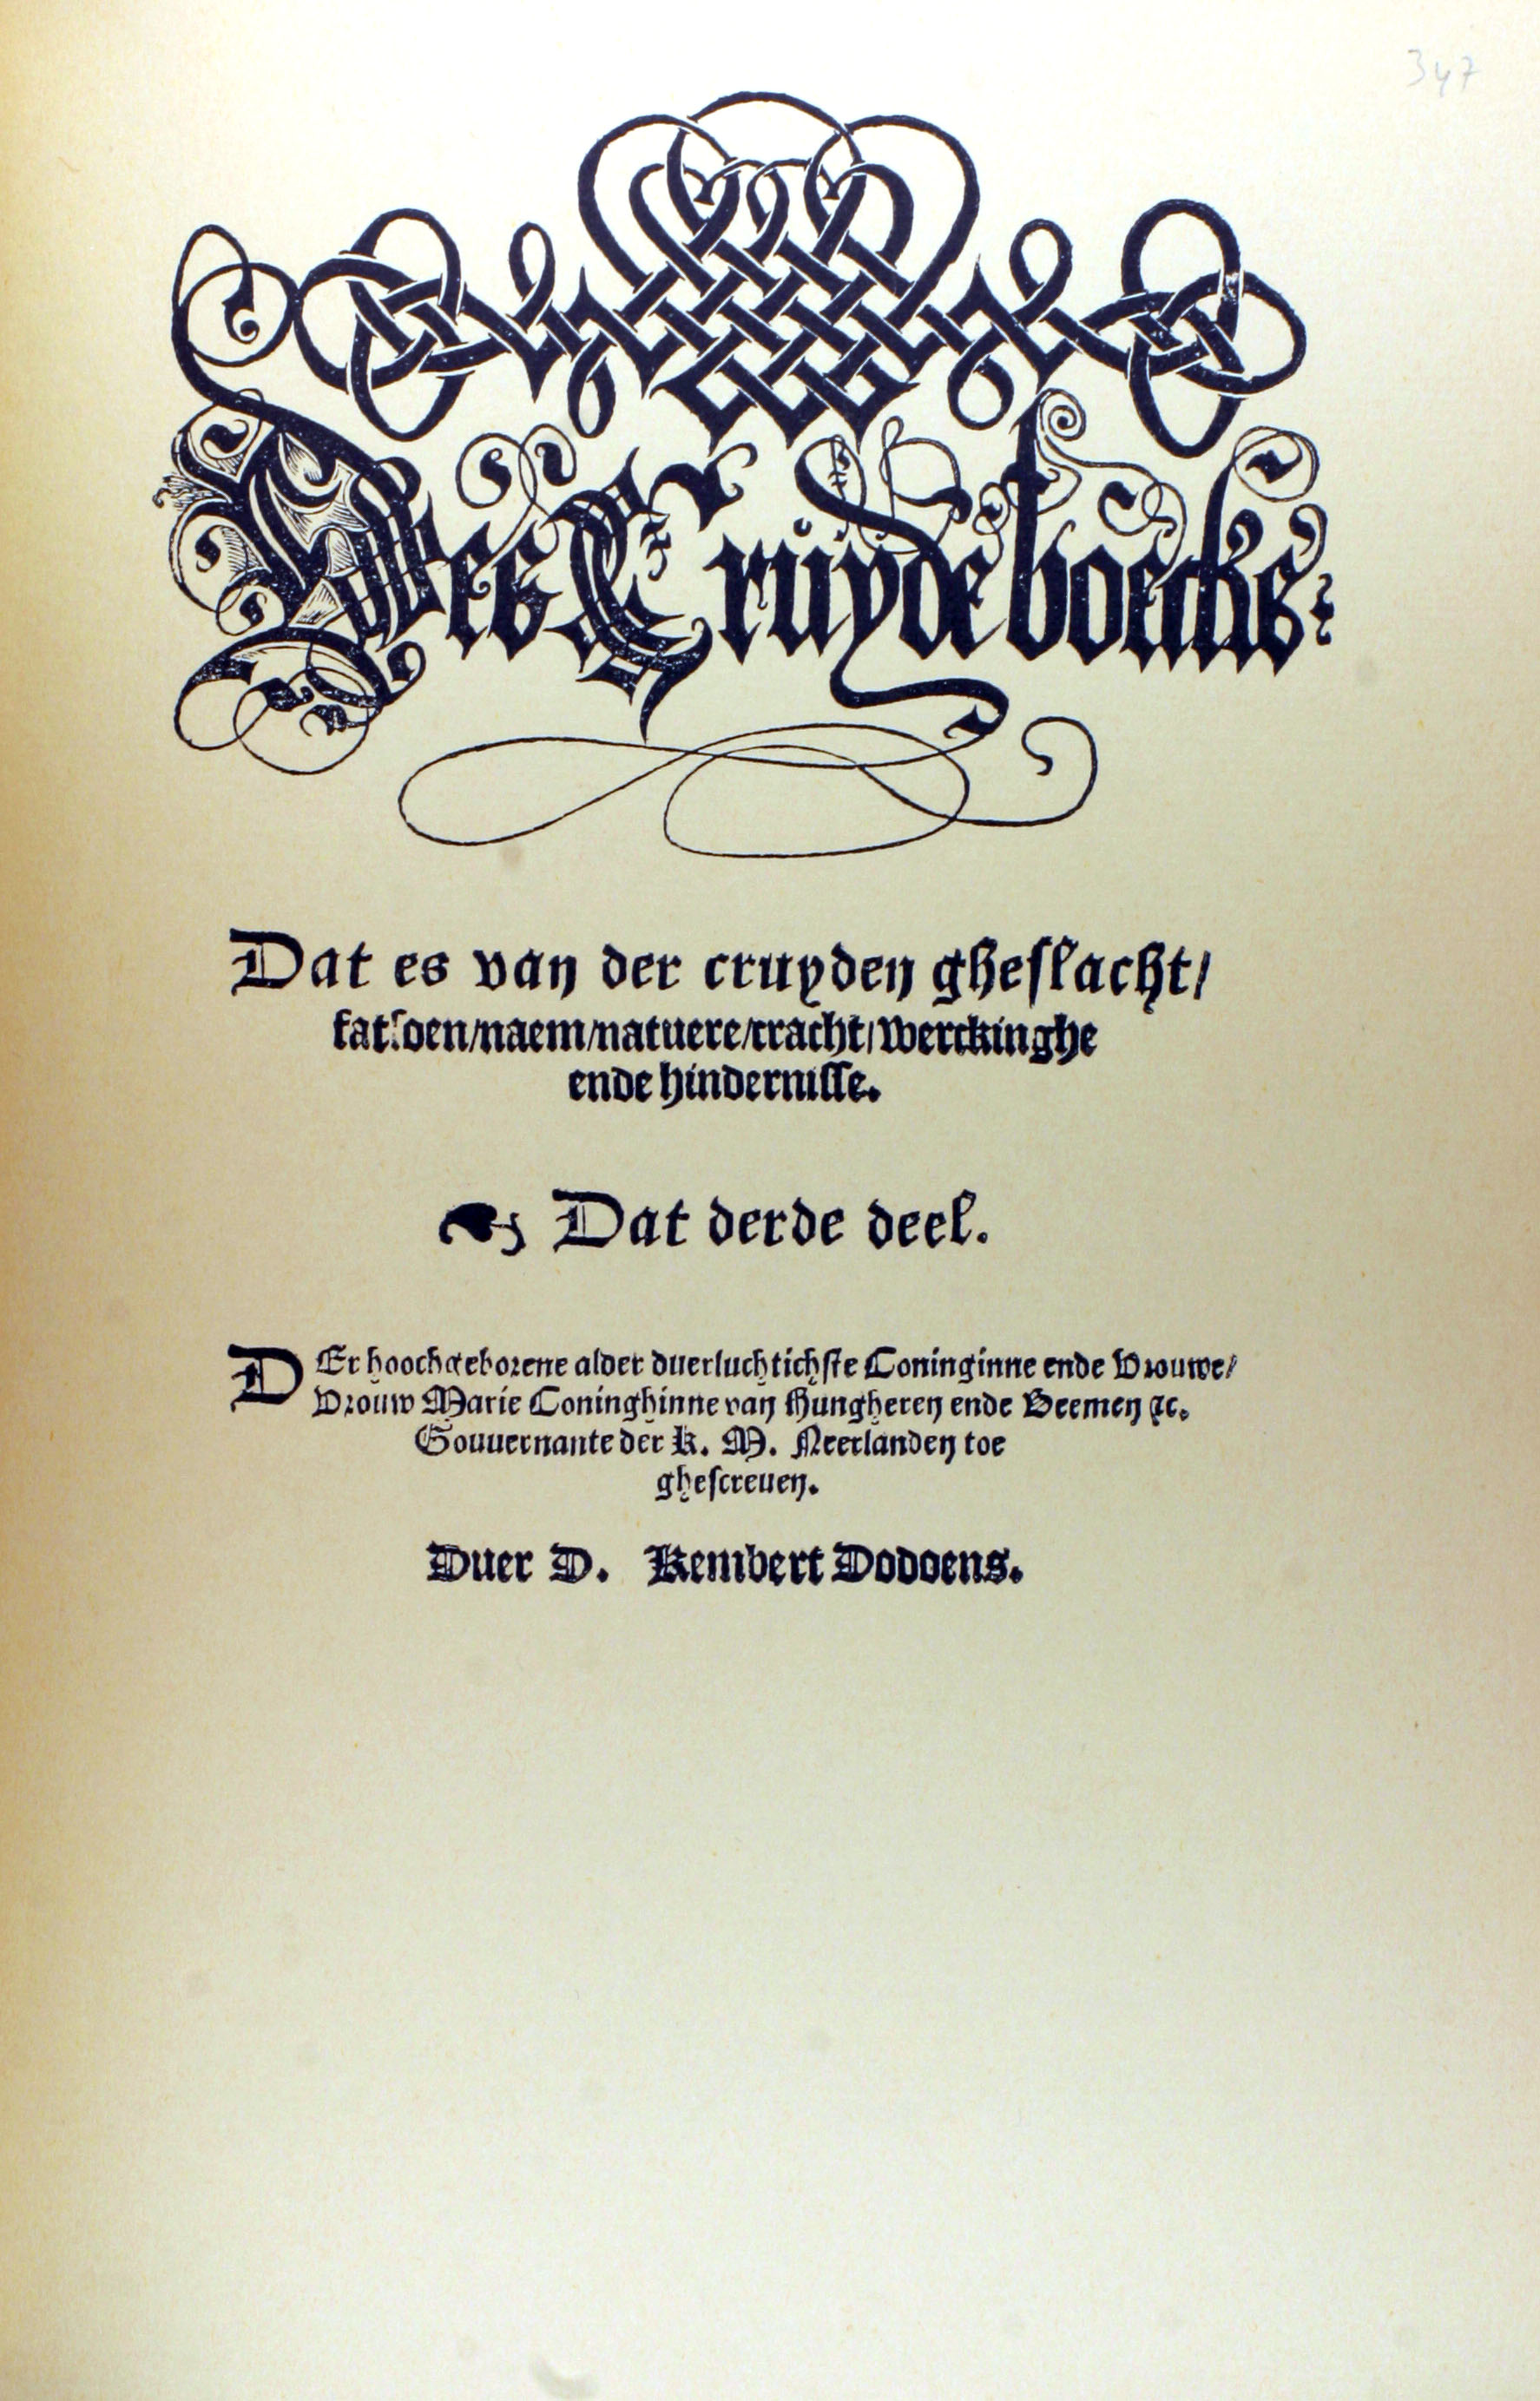 347
Des Cruydeboecks:
Dat es van der cruyden gheslacht/
fatsoen/naem/natuere/cracht/werckinghe
ende hindernisse.
Dat derde deel.
DEr hoochgeborene alder duerluchtichste Coninginne ende Vrouwe/
Vrouw Marie Coninghinne van Hungheren ende Beemen ꝛc.
Gouuernante der K. M. Neerlanden toe
ghescreuen.
Duer D. Rembert Dodoens.